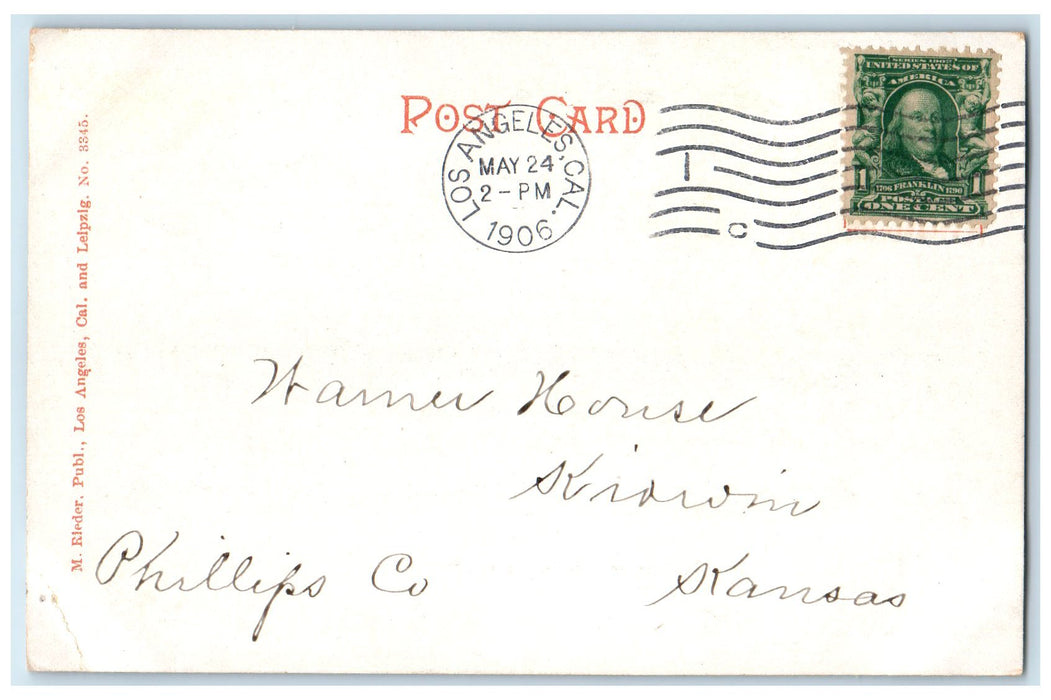 POST CARD
LOS ANGELES, CAL.
MAY 24
2-PM
1906
1
C
SERIES 1902
UNITED STATES OF
AMERICA
1 1706 FRANKLIN 1790 1
POSTAGE
ONE CENT
M. Rieder, Publ., Los Angeles, Cal. and Leipzig. No. 3345.
Warner House
Kirwin
Phillips Co Kansas